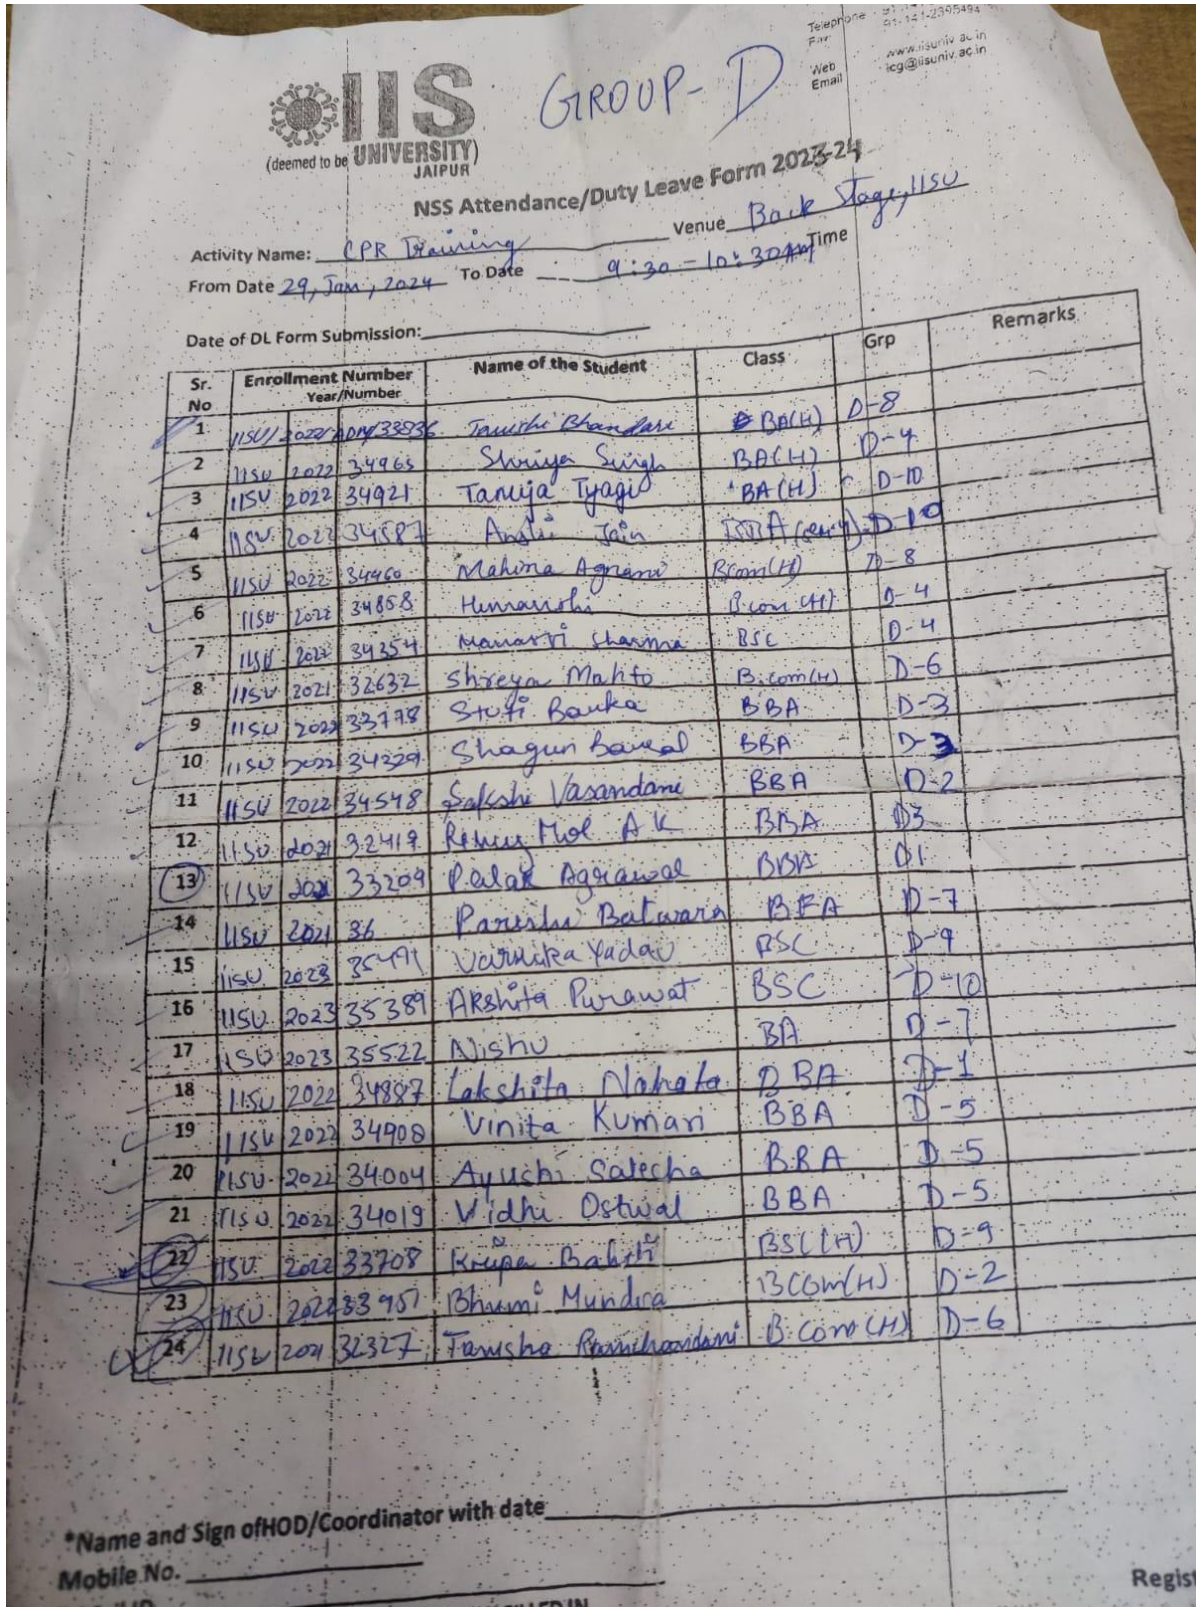 Telephone
91-141-2395494
Fax
Web www.iisuniv.ac.in
Email icg@iisuniv.ac.in
GROUP- D
IIS
(deemed to be UNIVERSITY)
JAIPUR
NSS Attendance/Duty Leave Form 2023-24
Activity Name: CPR Training Venue Back Stage, IISU
From Date 29, Jan, 2024 To Date 9:30 - 10:30 AM Time
Date of DL Form Submission:
Sr. No Enrollment Number Year/Number Name of the Student Class Grp Remarks
1 IISU/2022/ADM/33836 Tanishi Bhandari BA(H) D-8
2 IISU 2022 34965 Shriya Singh BA(H) D-4
3 IISU 2022 34921 Tanuja Tyagi BA(H) D-10
4 IISU 2022 34587 Jain D-10
5 IISU 2022 34460 Mahima Agrani Bcom(H) D-8
6 IISU 2022 34858 Himanshi B.com (H) D-4
7 IISU 2022 34354 Manasvi Sharma BSC D-4
8 IISU 2021 32632 Shreya Mahto B.com(H) D-6
9 IISU 2022 33778 Stuti Banka BBA D-3
10 IISU 2022 34229 Shagun Bansal BBA D-3
11 IISU 2022 34548 Sakshi Vasandani BBA D-2
12 IISU 2021 32419 Mol A K BBA D3
13 IISU 33209 Palak Agrawal BBA D1
14 IISU 2021 36 Batwara BFA D-7
15 IISU 2023 35471 Varnika Yadav BSC D-9
16 IISU 2023 35389 ARshita Purawat BSC D-10
17 IISU 2023 35522 Nishu BA D-7
18 IISU 2022 34887 Lakshita Nahata BBA D-1
19 IISU 2022 34908 Vinita Kumari BBA D-5
20 IISU 2022 34004 Ayushi Salecha BBA D-5
21 IISU 2022 34019 Vidhi Ostwal BBA D-5
22 IISU 2022 33708 Krupa Bakshi BSC(H) D-9
23 IISU 2022 33951 Bhumi Mundra BCOM(H) D-2
24 IISU 2021 32327 Tanisha Ramchandani B.Com(H) D-6
*Name and Sign ofHOD/Coordinator with date
Mobile No.
Regist